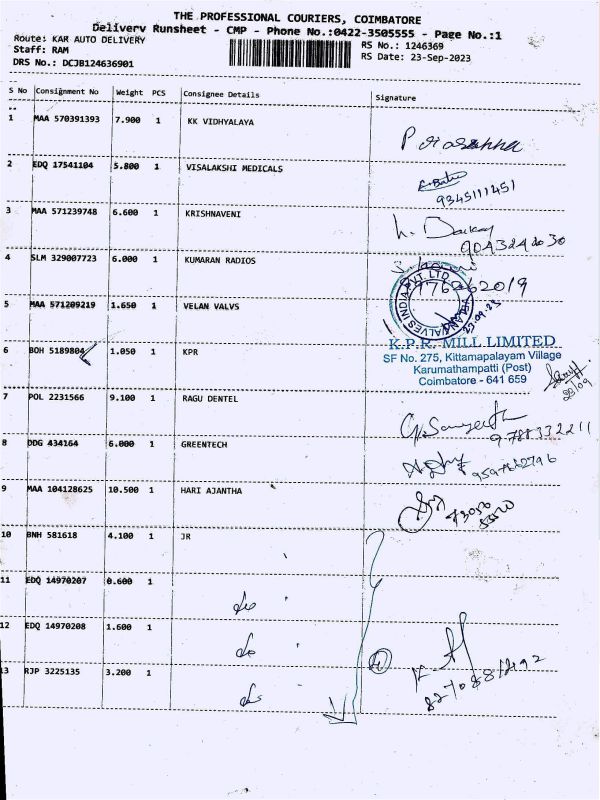 THE PROFESSIONAL COURIERS, COIMBATORE
Delivery Runsheet - CMP - Phone No.:0422-3505555 - Page No.:1
Route: KAR AUTO DELIVERY RS No.: 1246369
Staff: RAM RS Date: 23-Sep-2023
DRS No.: DCJB124636901
S No Consignment No Weight PCS Consignee Details Signature
1 MAA 570391393 7.900 1 KK VIDHYALAYA
2 EDQ 17541104 5.800 1 VISALAKSHI MEDICALS
9345111451
3 MAA 571239748 6.600 1 KRISHNAVENI
4 SLM 329007723 6.000 1 KUMARAN RADIOS
5 MAA 571209219 1.650 1 VELAN VALVS
23.09.23
K.P.R. MILL LIMITED
6 BOH 5189804 1.050 1 KPR SF No. 275, Kittamapalayam Village
Karumathampatti (Post)
Coimbatore - 641 659
23/09
7 POL 2231566 9.100 1 RAGU DENTEL
9788332211
8 DDG 434164 6.000 1 GREENTECH
9597662796
9 MAA 104128625 10.500 1 HARI AJANTHA
10 BNH 581618 4.100 1 JR
11 EDQ 14970207 0.600 1 do "
12 EDQ 14970208 1.600 1 do "
4
13 RJP 3225135 3.200 1 do